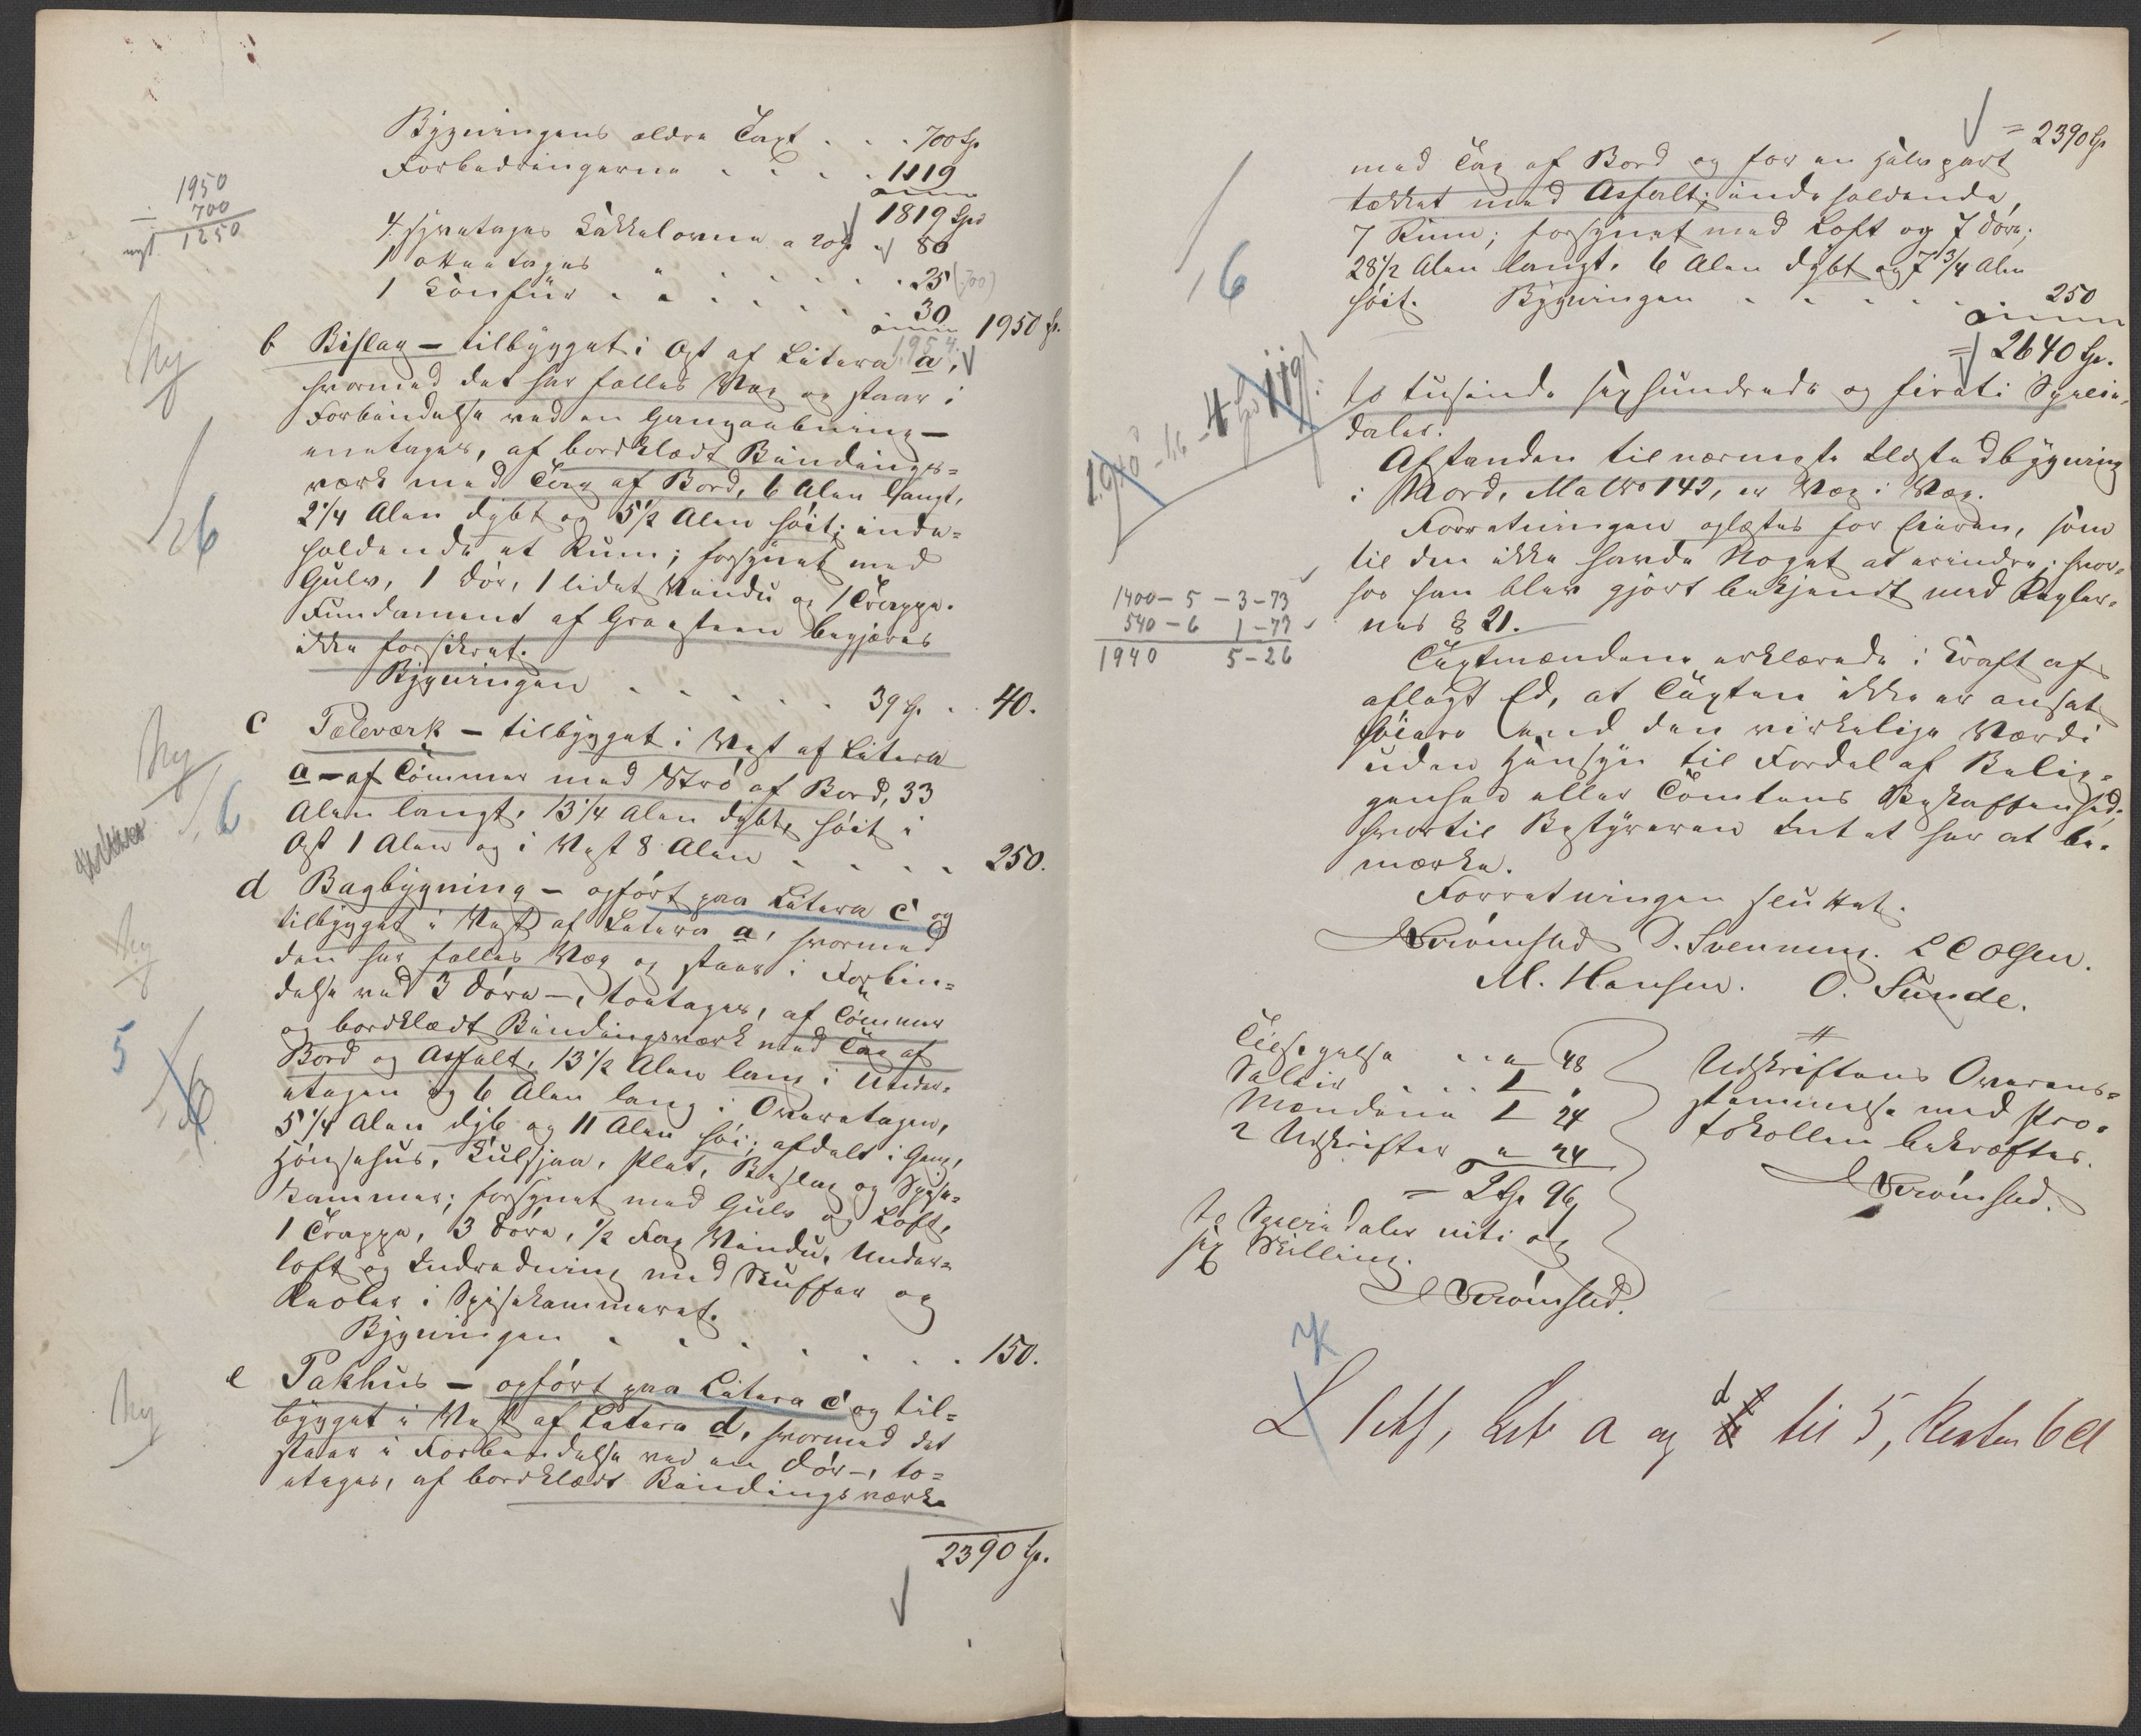 Bygningens ældre Taxt . . . 700 Sp
Forbedringerne . . . . 1119
1819 Spd
4 fireetages Kakkelovne a 20 Sp 80
1 otteetages " . . . . . 25
1 Komfür . . . . . . 30
1950 Sp.
1954.
1950
700
nyt 1250
b Bislag – tilbygget i Øst af Litera a,
hvormed det har fælles Væg og staar i
Forbindelse ved en Gangaabning –
eenetages, af bordklædt Bindings=
værk med Tag af Bord, 6 Alen langt,
2 1/4 Alen dybt og 5 1/2 Alen høit; inde=
holdende et Rum; forsynet med
Gulv, 1 Dör, 1 lidet Vindu og 1 Trappe.
Fundament af Graasteen begjæres
ikke forsikret.
Bygningen . . . . . 39 Sp. . 40.
ny
6
c Pæleværk – tilbygget i Vest af Litera
a – af Tömmer med Stro af Bord, 33
Alen langt, 13 1/4 Alen dybt, höit i
Øst 1 Alen og i Vest 8 Alen . . . . 250.
ny
6
d Bagbygning – opfört paa Litera c og
tilbygget i Vest af Litera a, hvormed
den har fælles Væg og staar i Forbin=
delse ved 3 Döre –, toetages, af Tömmer
og bordklædt Bindingsværk med Tag af
Bord og Asfalt, 13 1/2 Alen lang i Under=
etagen og 6 Alen lang i Overetagen,
5 1/4 Alen dyb og 11 Alen höi; afdelt i Gang,
Hönsehus, Kulsjaa, Plet, Bislag og Spise=
kammer; forsynet med Gulv og Loft,
1 Trappe, 3 Döre, 1/2 Fag Vindu, Under=
loft og Indredning med Skuffer og
Reoler i Spisekammeret.
Bygningen . . . . . . . 150.
ny
5
6
e Pakhus – opfört paa Litera c og til=
bygget i Vest af Litera d, hvormed det
staar i Forbindelse ved en Dör –, to=
etages, af bordklædt Bindingsværk
ny
2390 Sp.
= 2390 Sp
med Tag af Bord og for en Halvpart
tækket med Asfalt; indeholdende
7 Rum; forsynet med Loft og 7 Döre;
28 1/2 Alen langt, 6 Alen dybt og 7 3/4 Alen
höit. Bygningen . . . . . . 250
6
= 2640 Sp.
to tusinde sexhundrede og firti Specie=
daler.
Afstanden til nærmeste Træstedbygning
i Nord, Mat No 142, er Væg i Væg.
Forretningen oplæstes for Eieren, som
til den ikke havde Noget at erindre; hvor=
hos han blev gjort bekjendt med Regler=
nes § 21.
1400 – 5 – 3 – 73
540 – 6 1 – 77
1940 5 – 26
Taxtmændene erklærede i Kraft af
aflagt Ed, at Taxten ikke er ansat
höiere end den virkelige Værdi
uden Hensyn til Fordel af Belig=
genhed eller Tomtens Beskaffenhed,
hvortil Bestyreren Intet har at be=
mærke.
Forretningen sluttet.
Strömsted D. Svenning. L C Olsen.
M. Hansen. O. Sunde.
Tilsigelse . . " 48
Salair . . . 1 "
Mændene 1 24
2 Udskrifter " 24
= 2 Sp 96
to Speciedaler niti og
sex Skilling.
Strömsted.
#
Udskriftens Overens=
stemmelse med Pro=
tokollen bekræftes.
Strömsted.
K
Litr a og d til 5, Resten 6 Cl